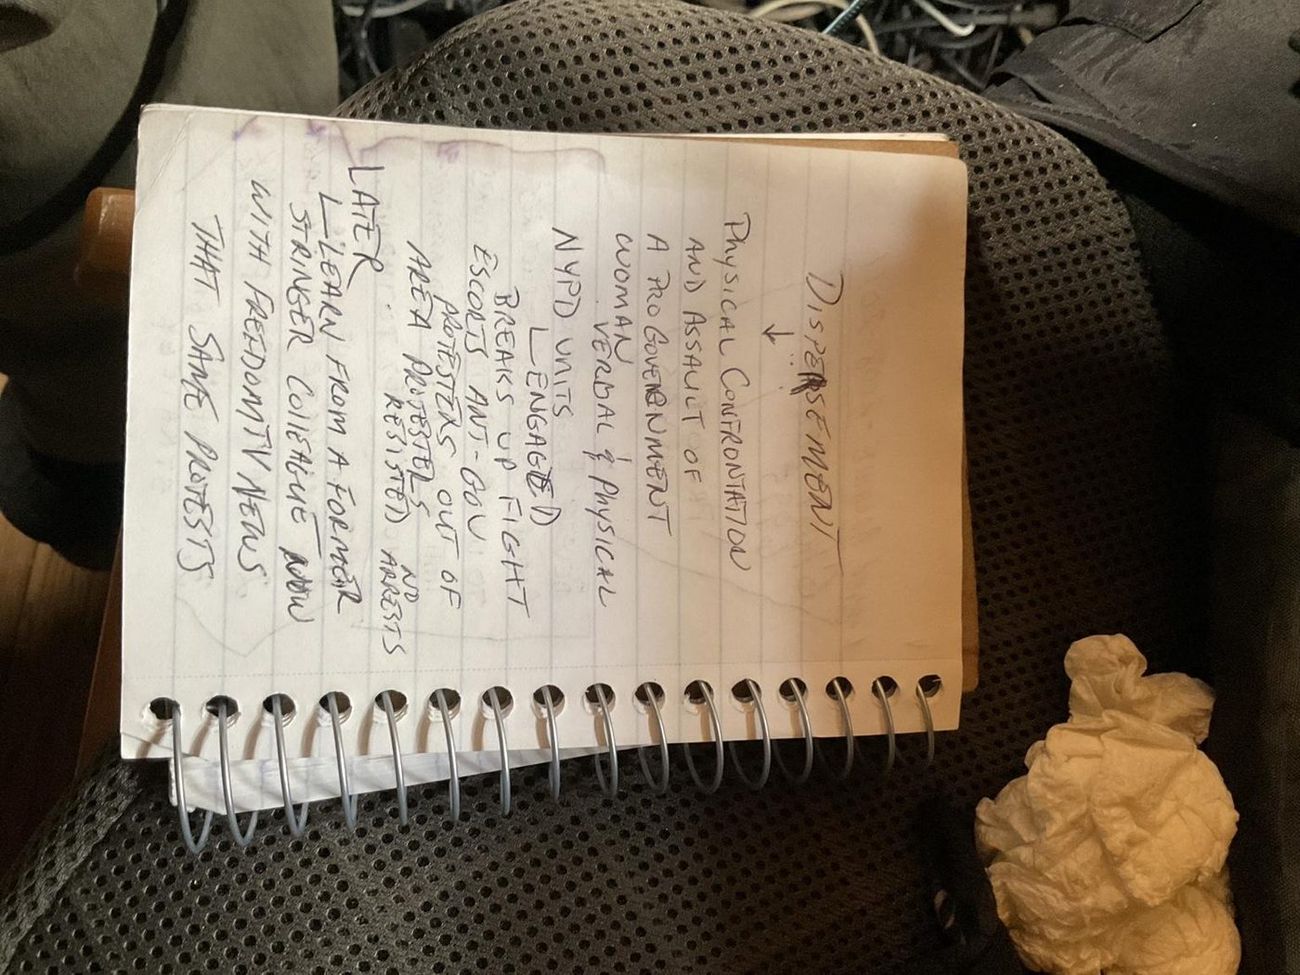 DISPERSEMENT
↓
PHYSICAL CONFRONTATION
AND ASSAULT OF
A PRO GOVERNMENT
WOMAN
VERBAL & PHYSICAL
NYPD UNITS
ENGAGED
BREAKS UP FIGHT
ESCORTS ANT-GOV
PROTESTERS OUT OF
AREA PROTESTERS NO
RESISTED ARRESTS
LATER
LEARN FROM A FORMER
STRINGER COLLEAGUE NOW
WITH FREEDOMTV NEWS
THAT SAME PROTESTS